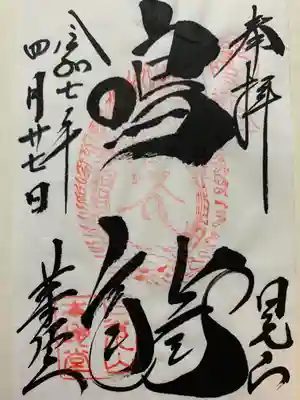 奉拝
日光山
鳴龍
令和七年
四月廿七日
薬師堂